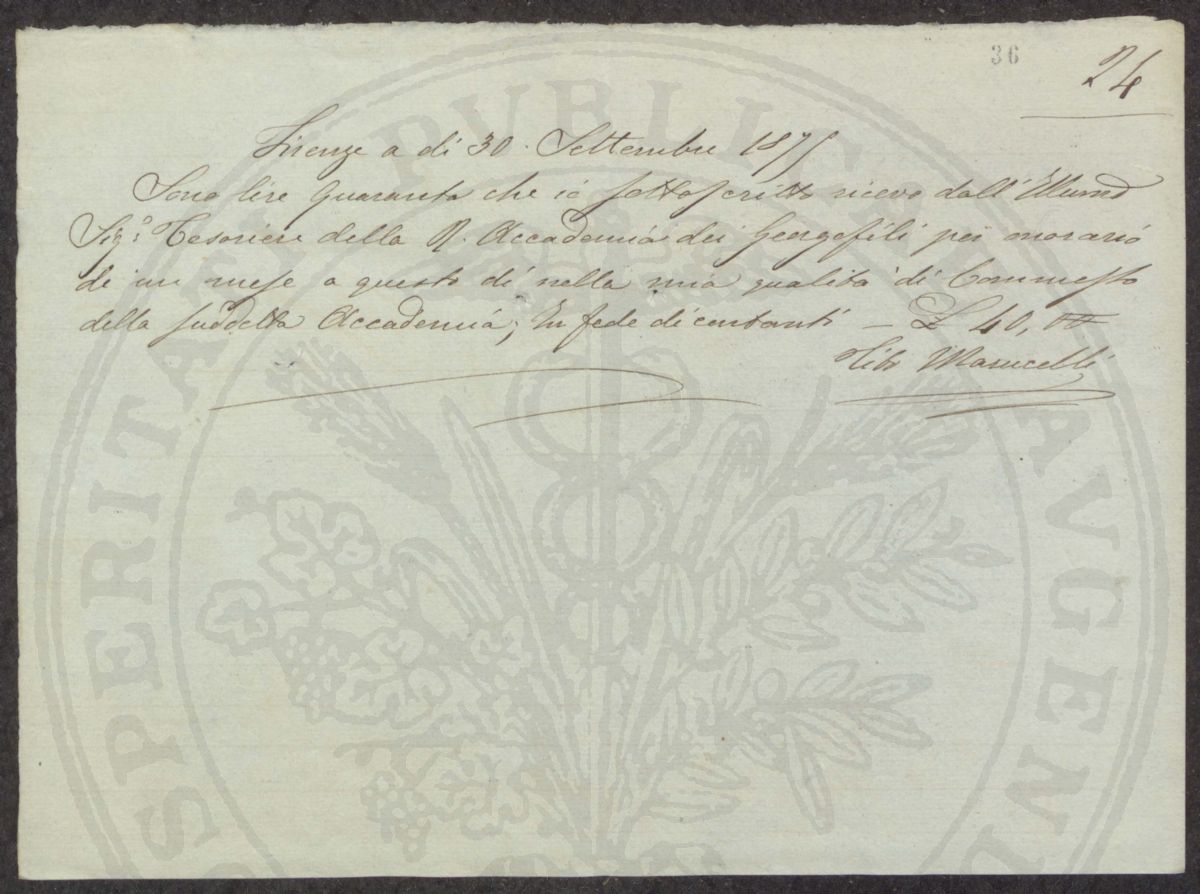 36
24
Firenze a dì 30. Settembre 1875
Sono lire quaranta che io sottoscritto ricevo dall'Illmo
Sigr. Tesoriere della R. Accademia dei Georgofili per onorario
di un mese a questo dì nella mia qualità di Commesso
della suddetta Accademia; In fede di contanti — £ 40,00
Tito Marucelli
SPERITATI PVBLICAE AVGEND